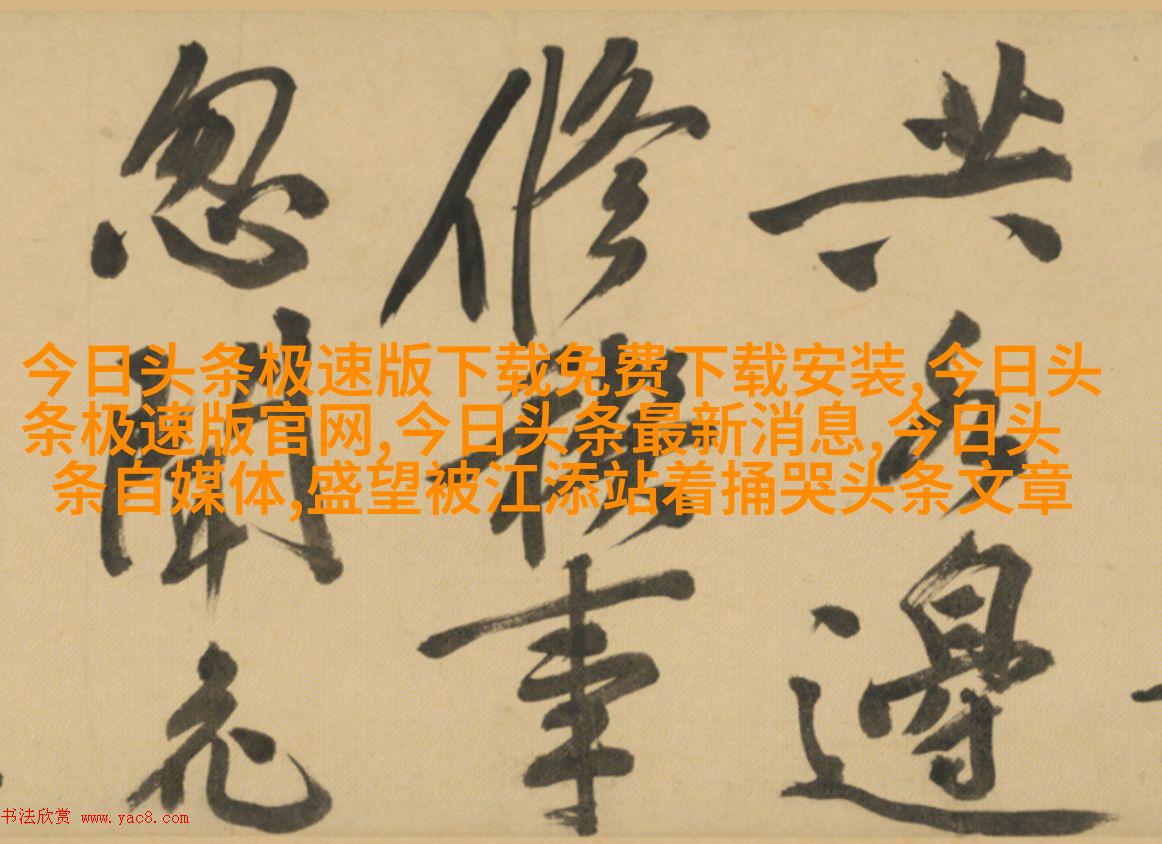 共邊
修禊事
忽聞
今日头条极速版下载免费下载安装,今日头
条极速版官网,今日头条最新消息,今日头
条自媒体,盛望被江添站着捅哭头条文章
书法欣赏 www.yac8.com